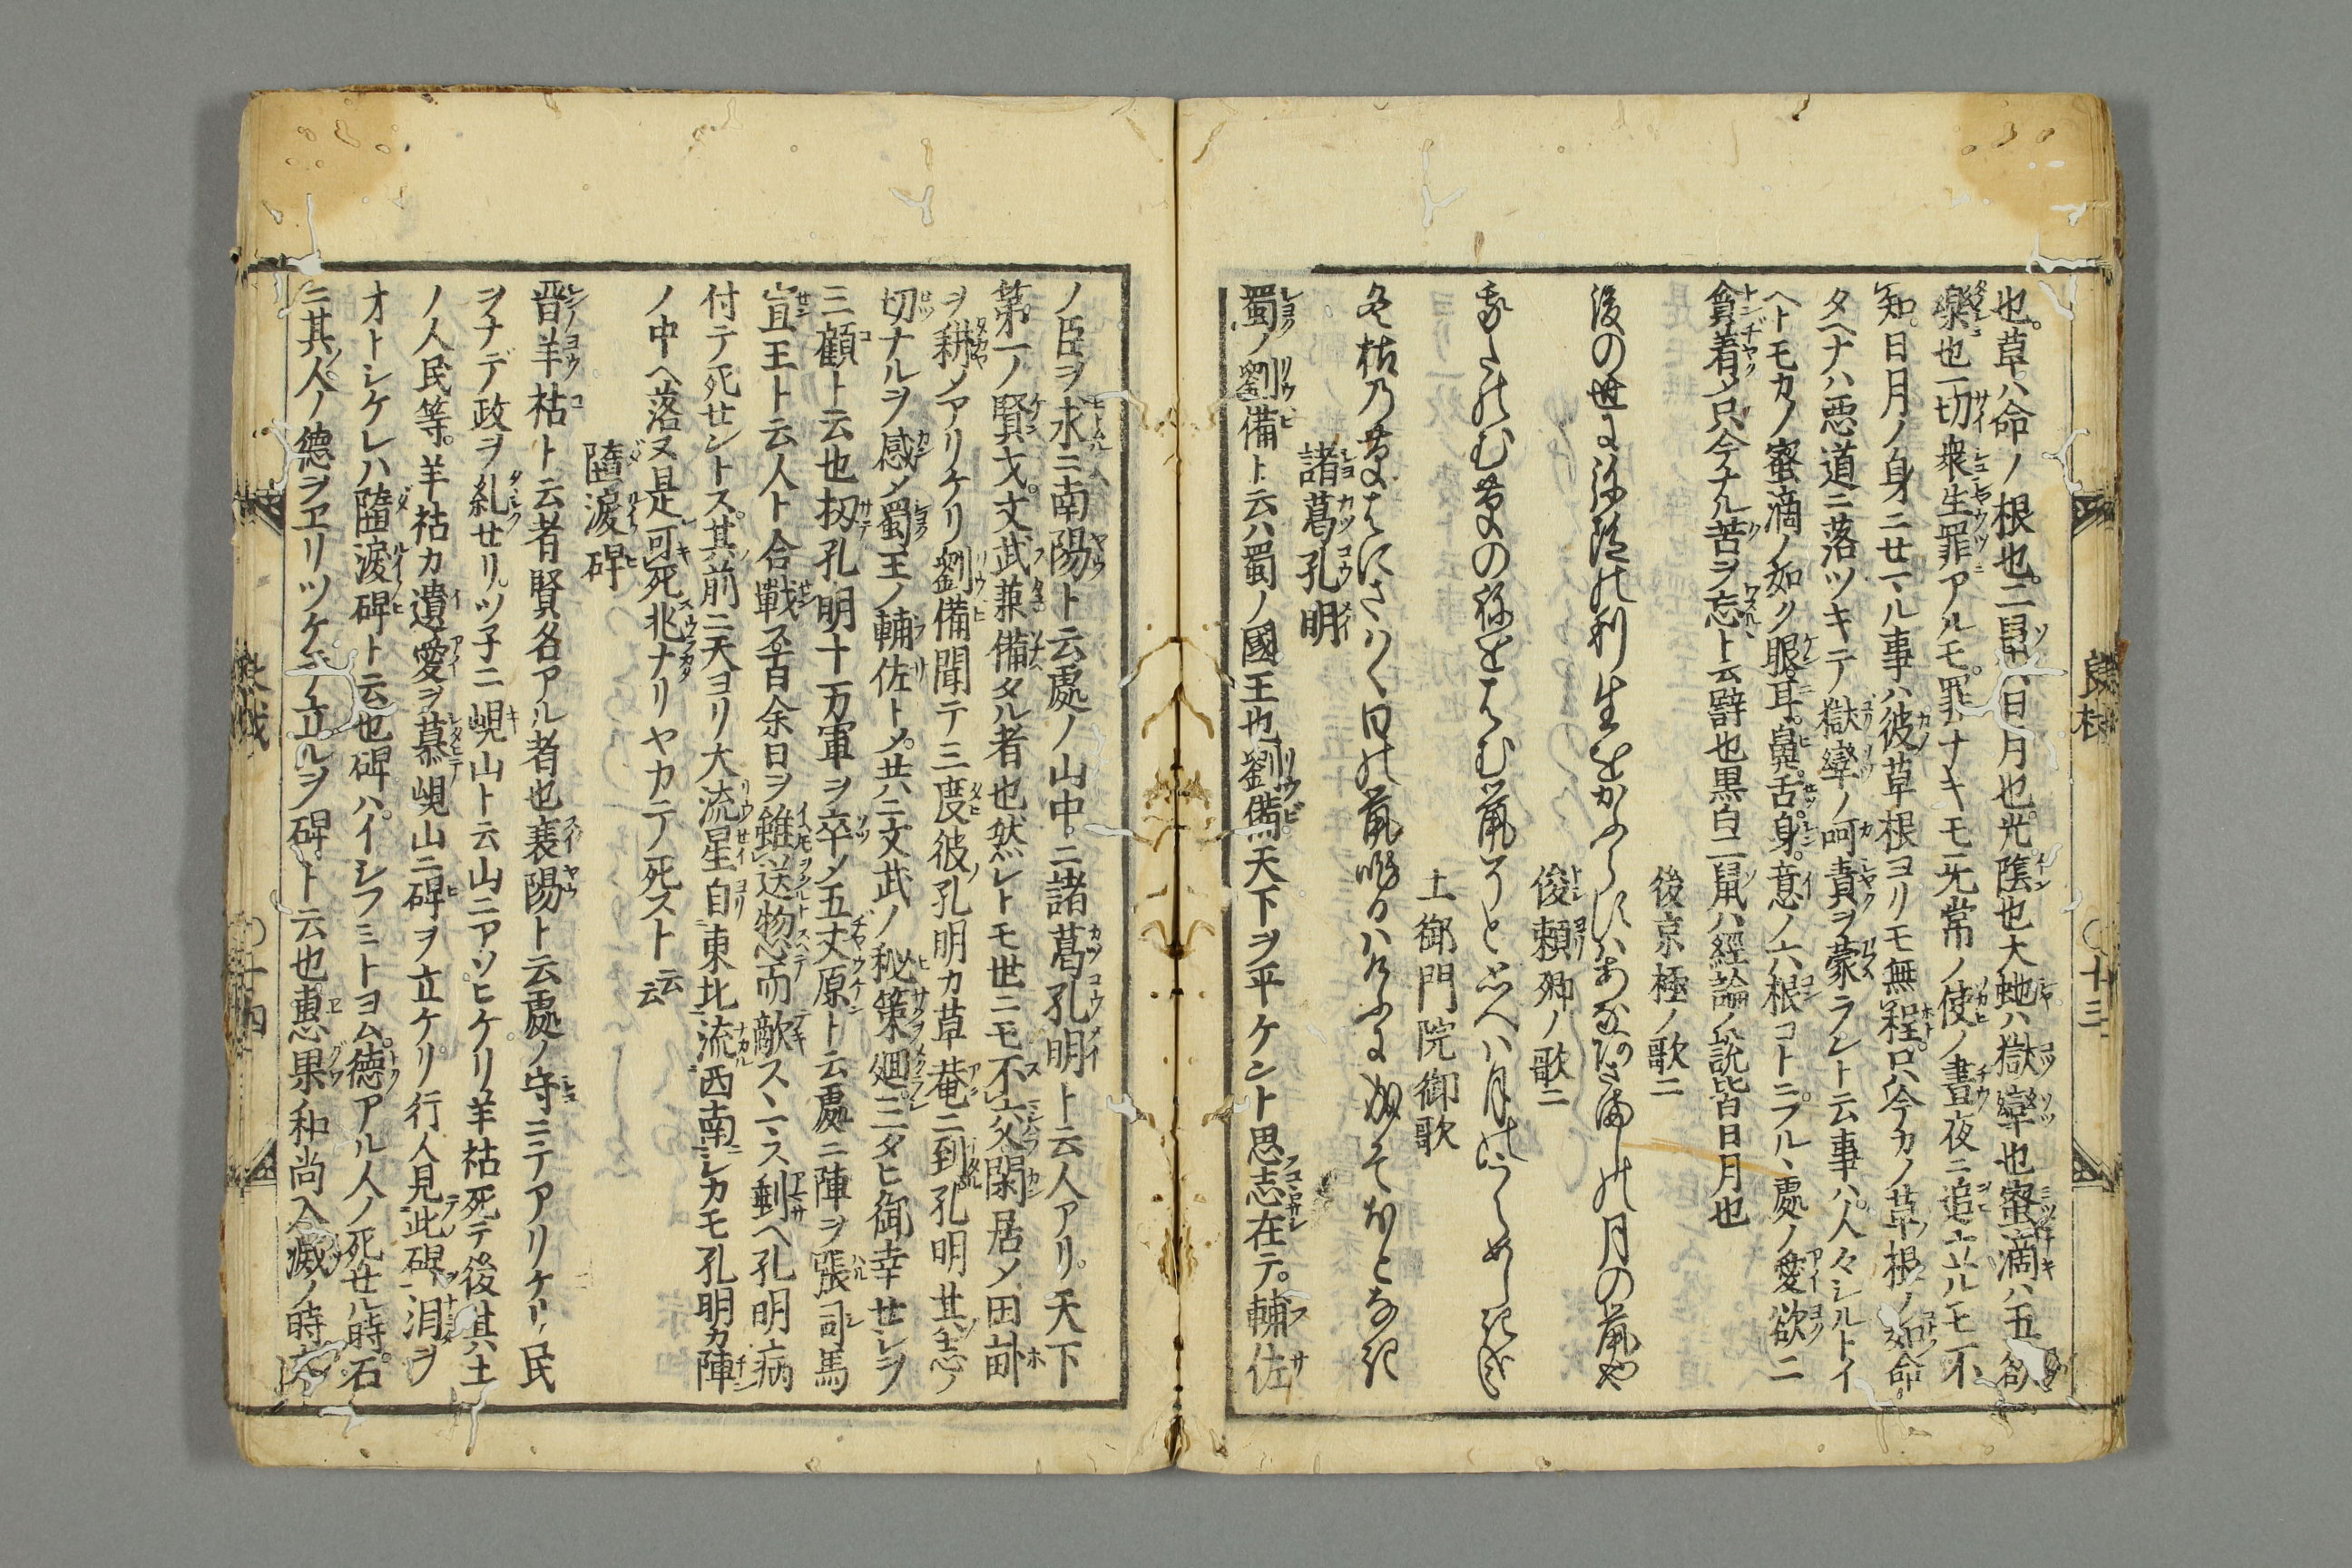 也。草ハ命ノ根也。二鼠ハ日月也。光陰也大虵ハ獄率也蜜滴ハ五欲
樂也一切衆生罪アルモ。罪ナキモ旡常ノ使ノ晝夜ニ追立ルモ不
知。日月ノ身ニせマル事ハ彼草根ヨリモ無程。只今カノ草根ノ如命
タヘナハ悪道ニ落ツキテ獄率ノ呵責ヲ蒙ラント云事ハ。人々シルトイ
ヘトモカノ蜜滴ノ如ク眼。耳。鼻。舌。身。意ノ六根コトニフルヽ處ノ愛欲ニ
貪着メ只今ナル苦ヲ忘ト云辭也黒白二鼠ハ經論ノ説皆日月也
後京極ノ歌ニ
後の世に弥陀の利生をかふらすハあなあさましの月の鼠や
俊頼卿ノ歌ニ
我たのむ草の根をはむ鼠そとおもへハ月のうらめしきかな
土御門院御歌
冬枯乃
諸葛孔明
蜀ノ劉備ト云ハ蜀ノ國王也劉備天下ヲ平ケント思志在テ。輔佐
ノ臣ヲ求ニ南陽ト云處ノ山中ニ諸葛孔明ト云人アリ。天下
第一ノ賢才。文武兼備タル者也然レトモ世ニモ不交閑居メ田畝
ヲ耕メアリケリ劉備聞テ三度彼孔明カ草菴ニ到孔明其志ノ
切ナルヲ感メ蜀王ノ輔佐トメ。共ニ文武ノ秘策廻。三タヒ御幸せシヲ
三顧ト云也扨孔明十一万軍ヲ卒メ五丈原ト云處ニ陣ヲ張司馬
宣王ト云人ト合戰ス百余日ヲ雖送物惣而敵スヽマス剰ヘ孔明病
付テ死せントス。其前ニ天ヨリ大流星自東北流西南シカモ孔明カ陣
ノ中ヘ落ヌ是可死兆ナリヤカテ死スト云云
墮淚碑
晋羊祜ト云者賢名アル者也襄陽ト云處ノ守ニテアリケリ民
ヲナデ政ヲ糺せリ。ツ子ニ峴山ト云山ニアソヒケリ羊祜死テ後其土
ノ人民等。羊祜カ遺愛ヲ慕峴山ニ碑ヲ立ケリ行人見此碑泪ヲ
オトシケレハ墮淚碑ト云也碑ハ。イシフミトヨム。徳アル人ノ死せル時。石
ニ其人ノ徳ヲヱリツケテ立ルヲ碑。ト云也恵果和尚入滅ノ時
○十三
○十四